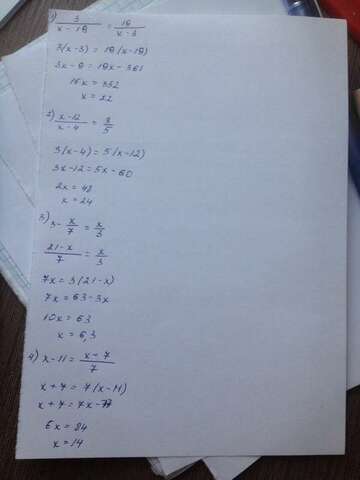 1) 3/(x-19) = 19/(x-3)
3(x-3) = 19(x-19)
3x-9 = 19x-361
16x = 352
x = 22
2) (x-12)/(x-4) = 3/5
3(x-4) = 5(x-12)
3x-12 = 5x-60
2x = 48
x = 24
3) 3 - x/7 = x/3
(21-x)/7 = x/3
7x = 3(21-x)
7x = 63-3x
10x = 63
x = 6,3
4) x-11 = (x+7)/7
x+7 = 7(x-11)
x+7 = 7x-77
6x = 84
x = 14